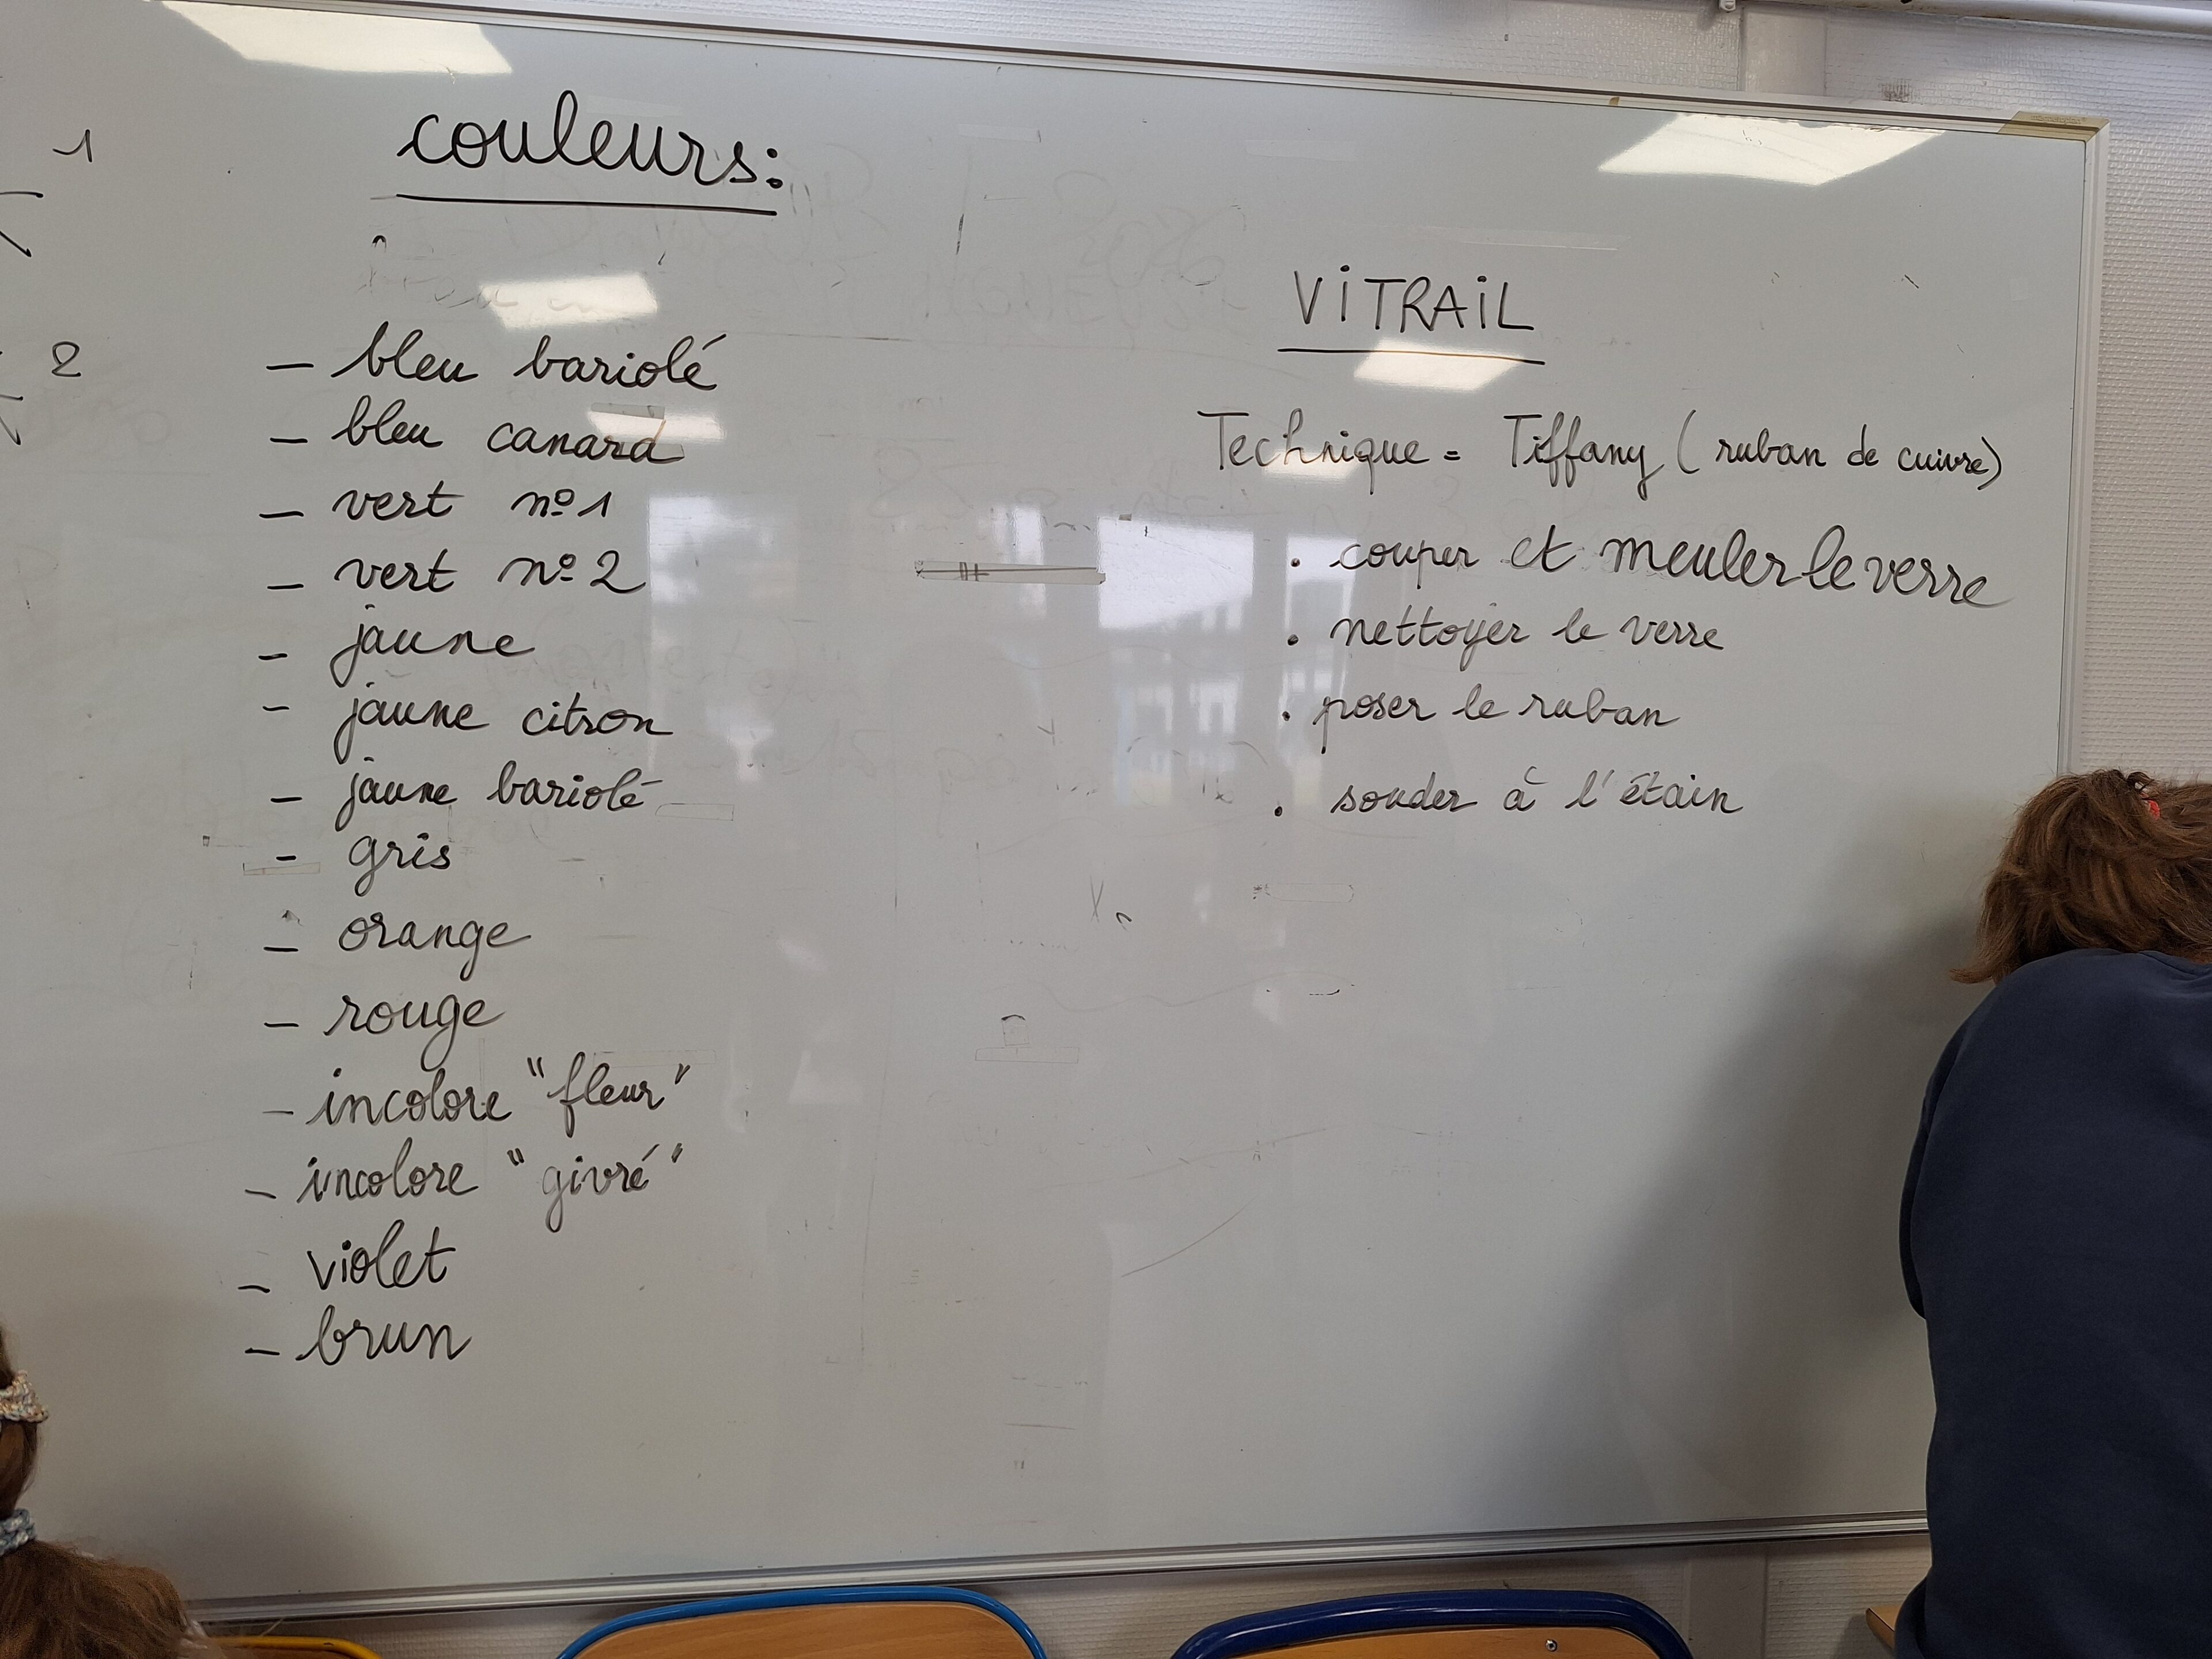 1
2
couleurs:
- bleu bariolé
- bleu canard
- vert nº1
- vert nº2
- jaune
- jaune citron
- jaune bariolé
- gris
- orange
- rouge
- incolore "fleur"
- incolore "givré"
- violet
- brun
ViTRAiL
Technique = Tiffany (ruban de cuivre)
. couper et meuler le verre
. nettoyer le verre
. poser le ruban
. souder à l'étain